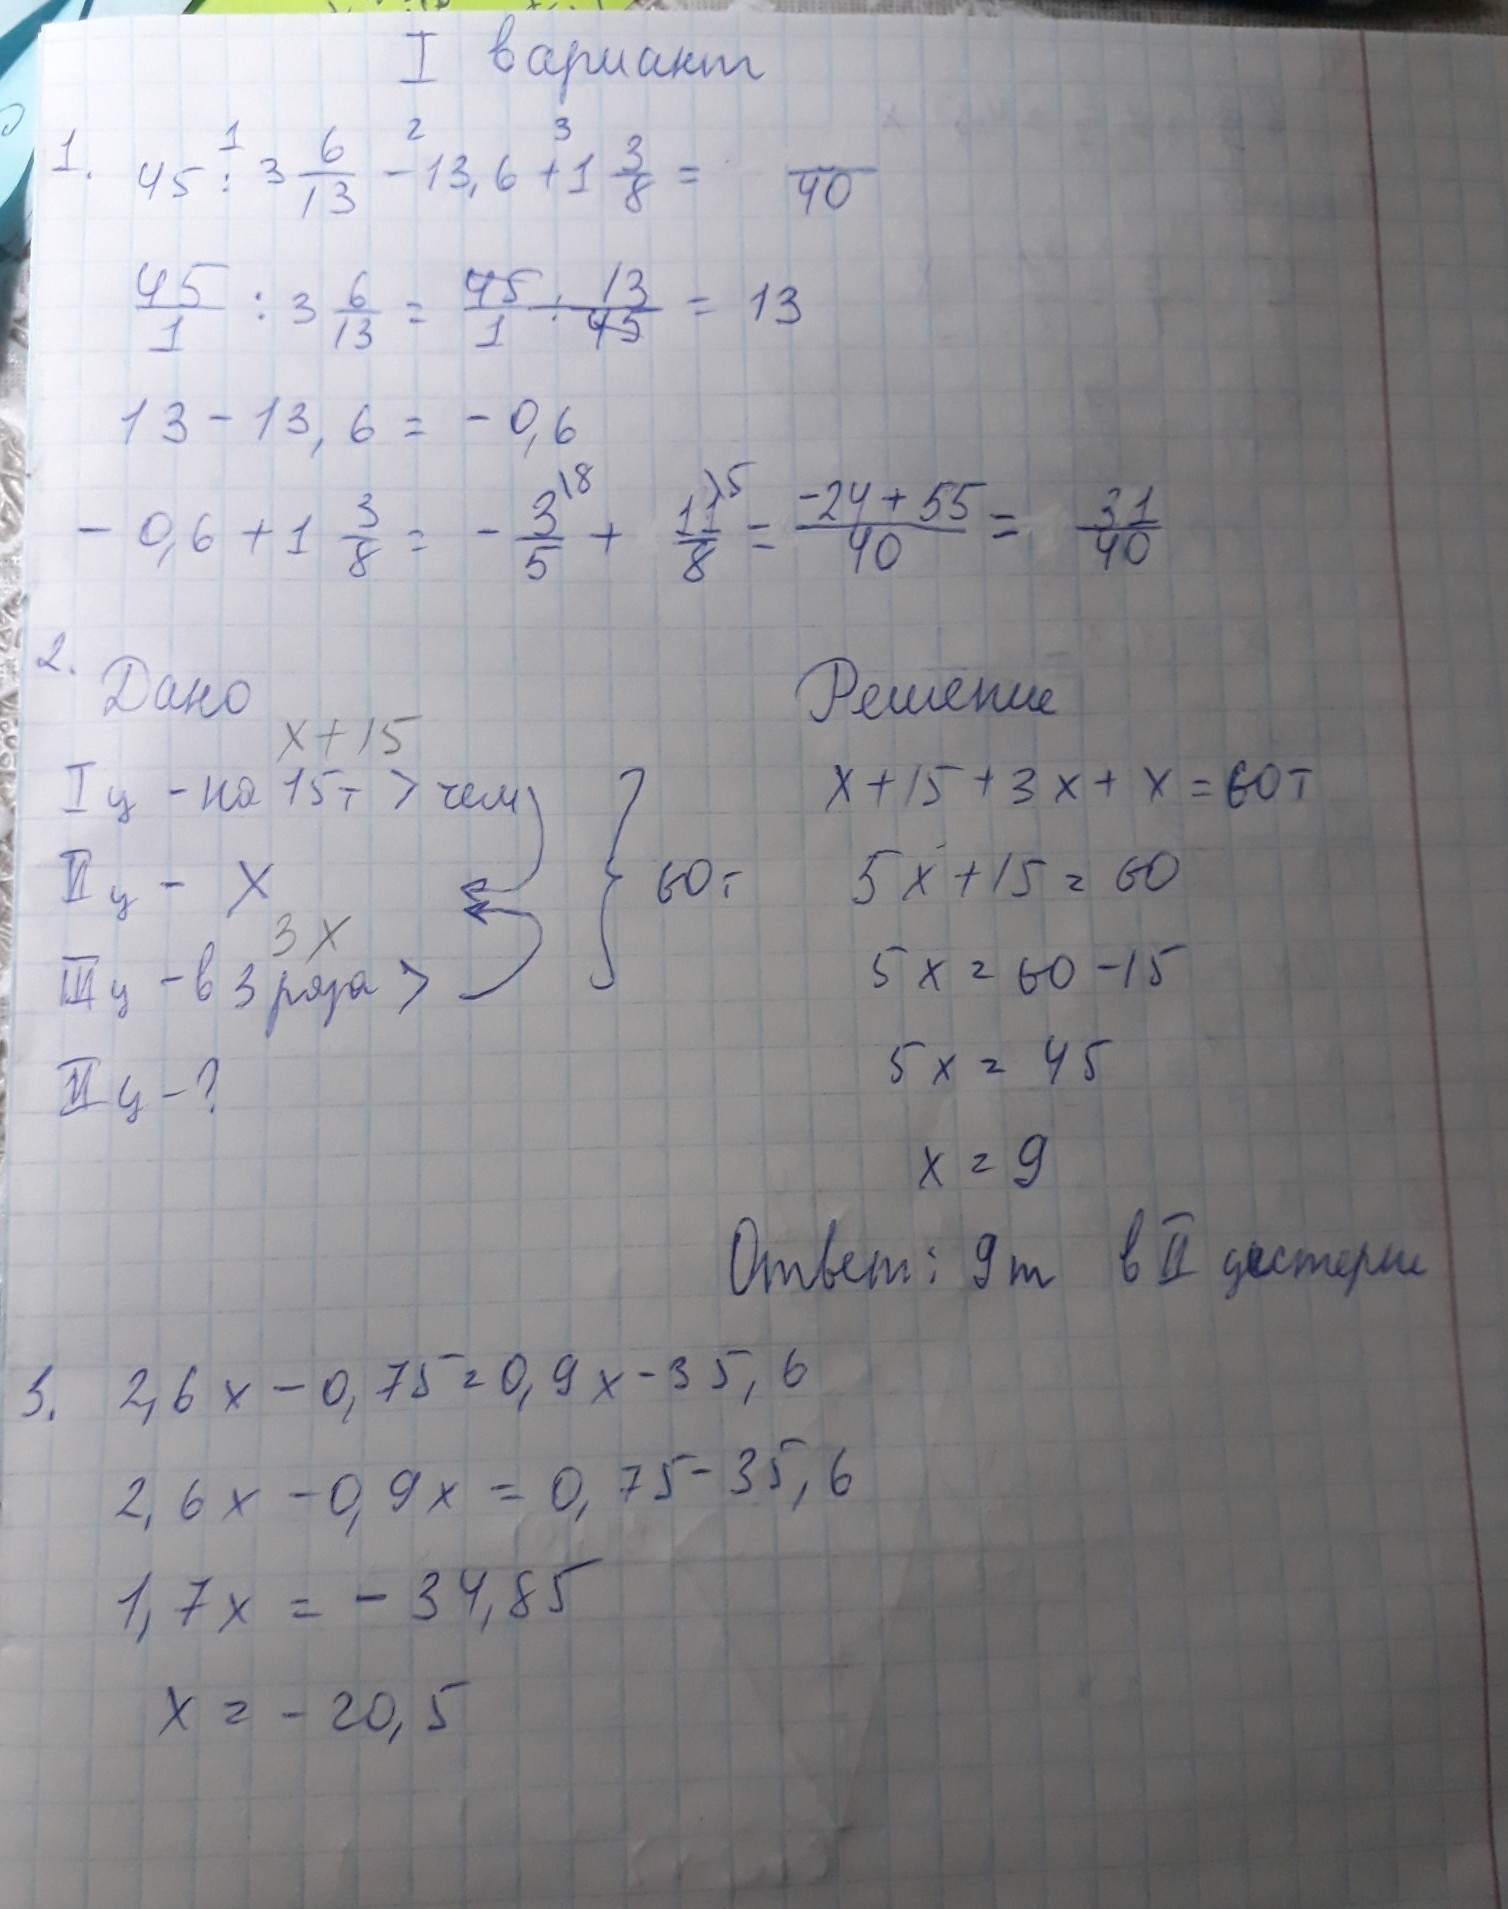 I вариант
1. 45 : 3 6/13 - 13,6 + 1 3/8 = /40
1 2 3
45/1 : 3 6/13 = 45/1 · 13/45 = 13
13 - 13,6 = - 0,6
- 0,6 + 1 3/8 = - 3/5 \8 + 11/8 \5 = -24 + 55/40 = 31/40
2. Дано
x + 15
I ц - на 15т > чем
II ц - x
3x
III ц - в 3 раза >
60т
II ц - ?
Решение
x + 15 + 3x + x = 60т
5x + 15 = 60
5x = 60 - 15
5x = 45
x = 9
Ответ: 9т в II цистерне
3. 2,6x - 0,75 = 0,9x - 35,6
2,6x - 0,9x = 0,75 - 35,6
1,7x = - 34,85
x = - 20,5